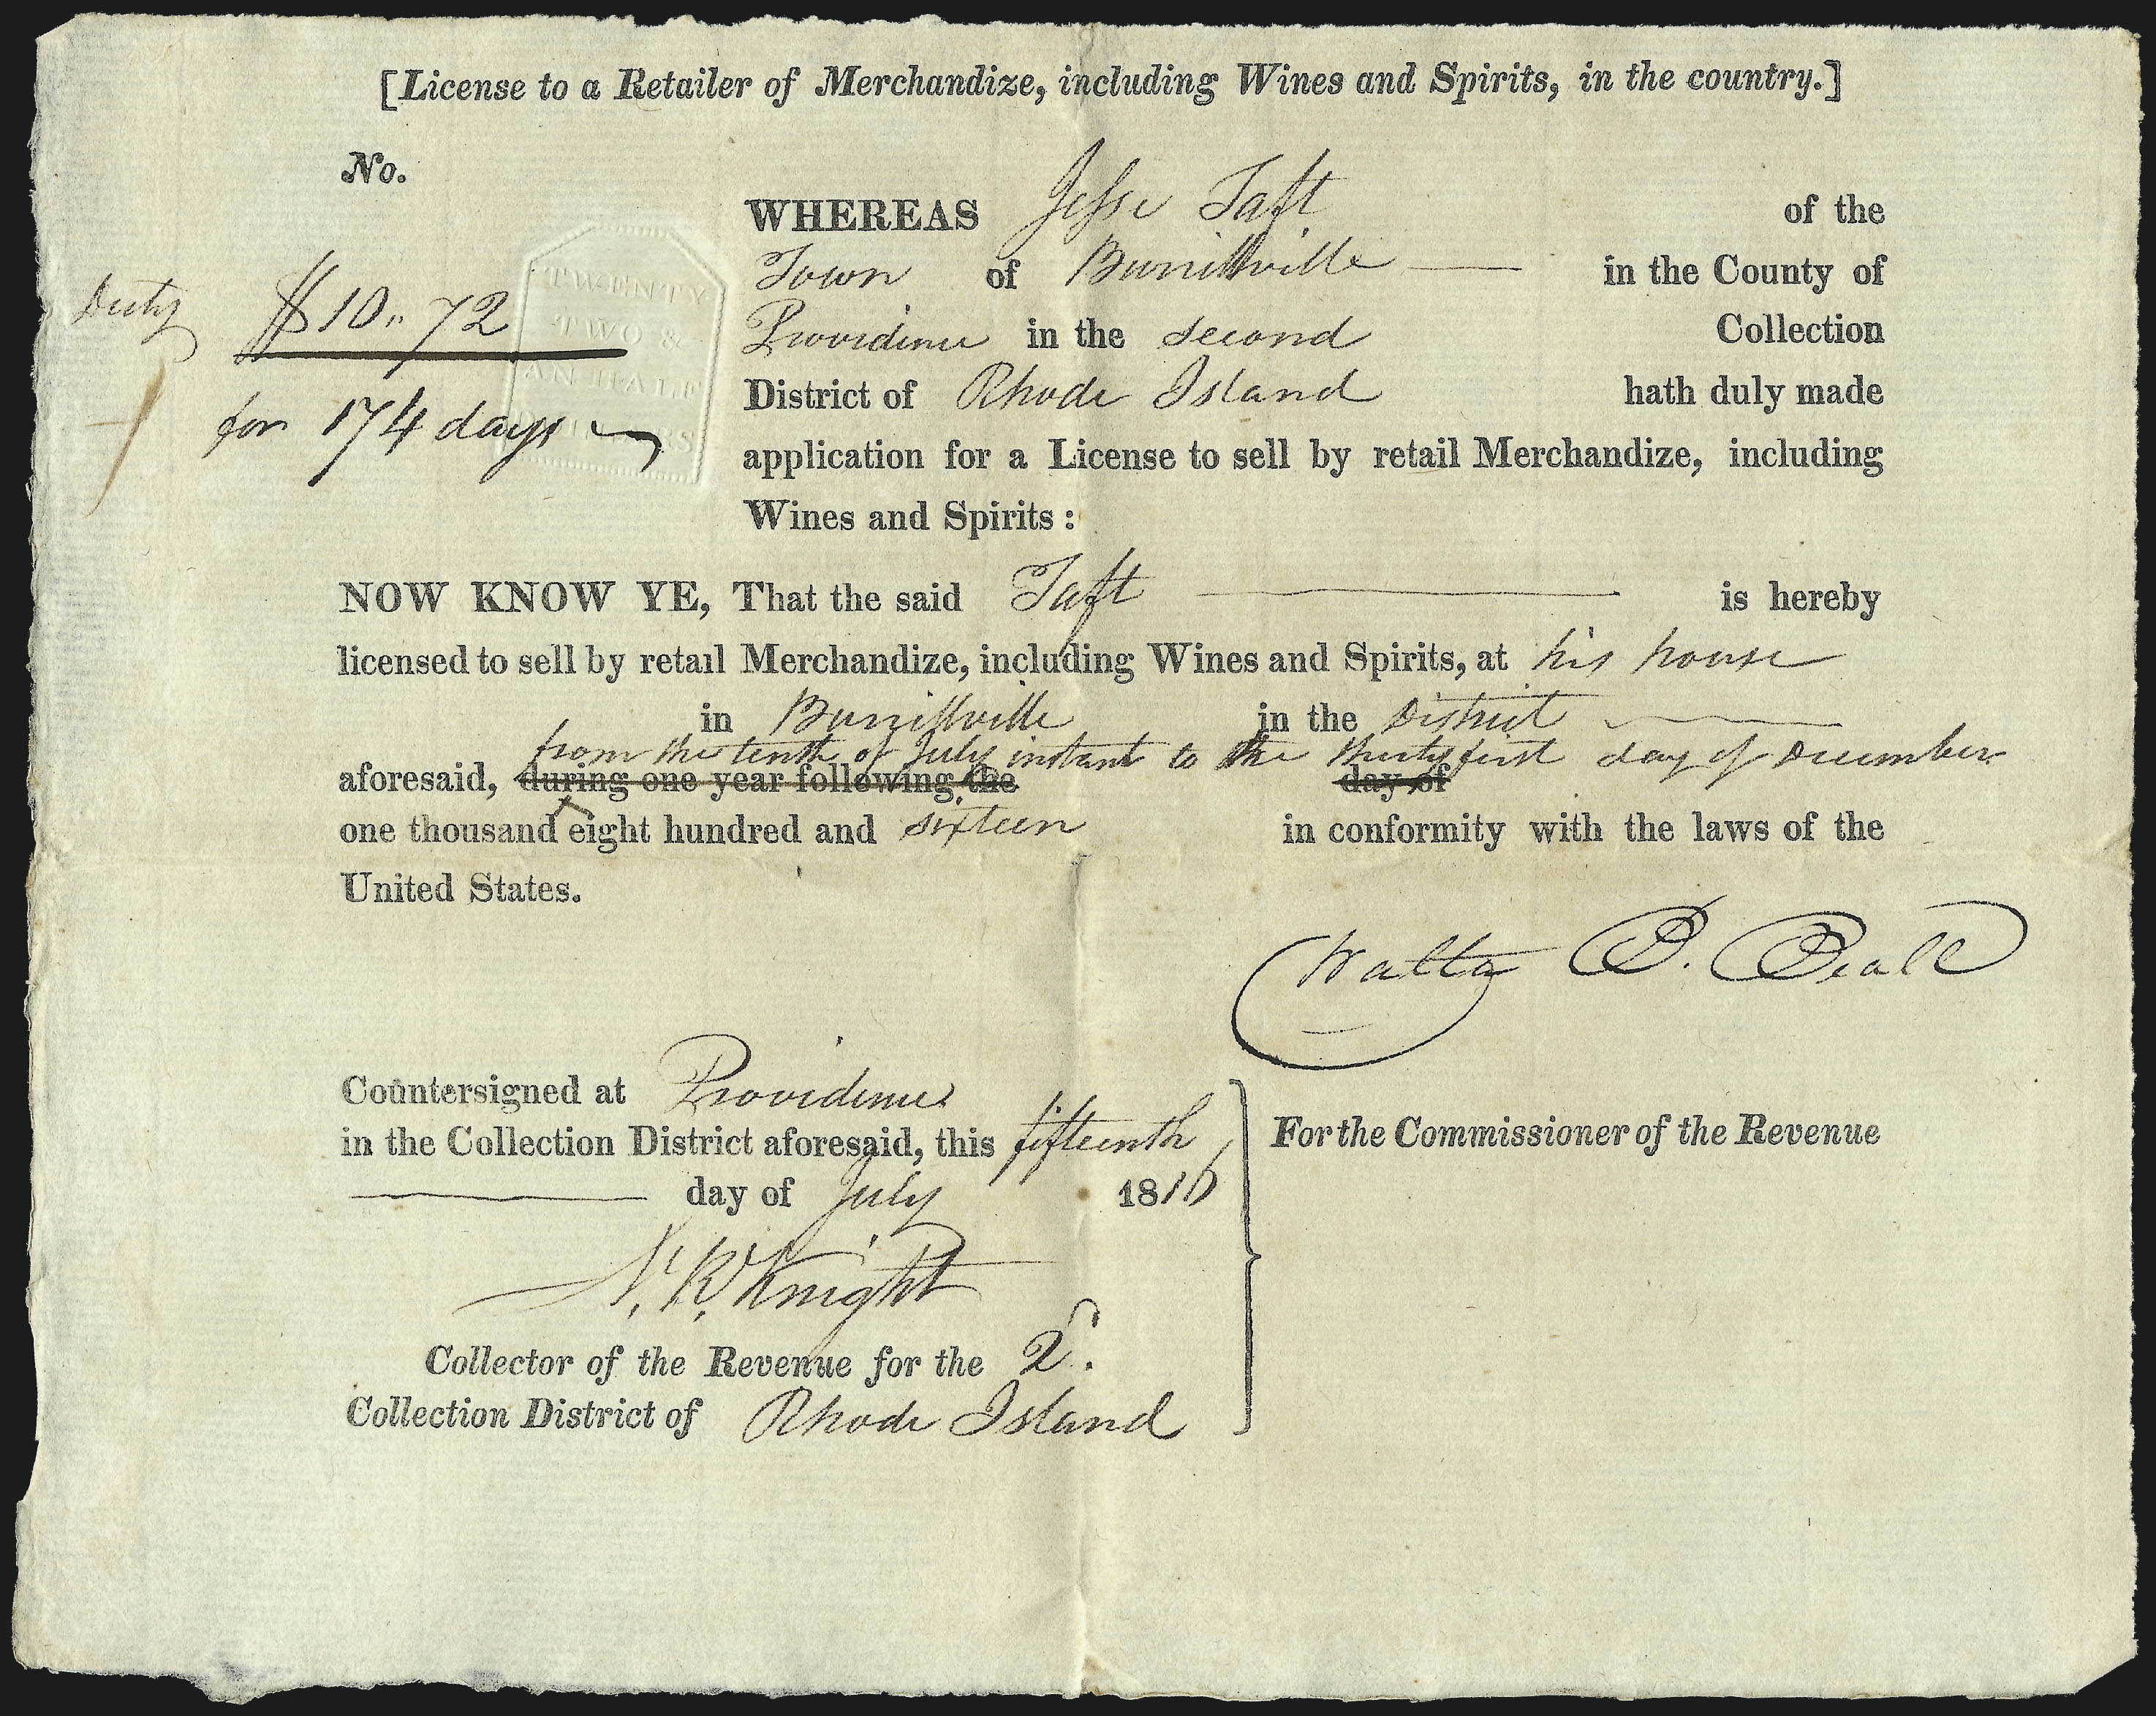 [License to a Retailer of Merchandize, including Wines and Spirits, in the country.]
No.
WHEREAS Jesse Taft of the
Town of Burrillville in the County of
Providence in the second Collection
District of Rhode Island hath duly made
application for a License to sell by retail Merchandize, including
Wines and Spirits :
Duty $10.. 72
for 174 days
TWENTY
TWO &
AN HALF
DOLLARS
NOW KNOW YE, That the said Taft is hereby
licensed to sell by retail Merchandize, including Wines and Spirits, at his house
in Burrillville in the District
from the tenth of July instant to the thirty first day of December
aforesaid, during one year following the day of
one thousand eight hundred and sixteen in conformity with the laws of the
United States.
Walter B. Beall
Countersigned at Providence
in the Collection District aforesaid, this fifteenth
day of July 1816
For the Commissioner of the Revenue
N. R. Knight
Collector of the Revenue for the 2d.
Collection District of Rhode Island